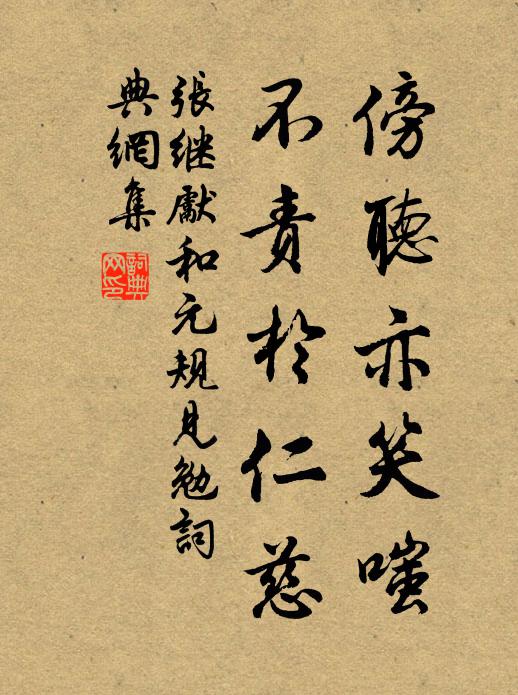 傍聽亦笑嗤
不責於仁慈
張继獻和元規見勉詞
典網集
詞典
网印